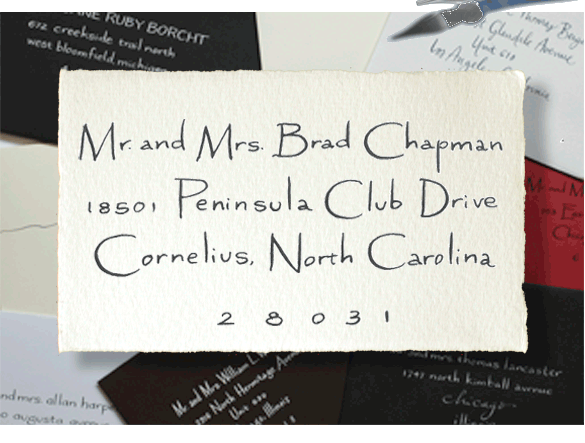 NE RUBY BORCHT
672 creekside trail north
west bloomfield michigan
Glendale Avenue
Unit 610
Los Angeles
Mr. and Mrs. Brad Chapman
18501 Peninsula Club Drive
Cornelius, North Carolina
2 8 0 3 1
Mr. and M
and mrs. allan harp
o augusta avenue
Mr. and Mrs. William L.
North Hermitage Avenue
Unit
Illinois
and mrs. thomas lancaster
1747 north kimball avenue
chicago
illinois